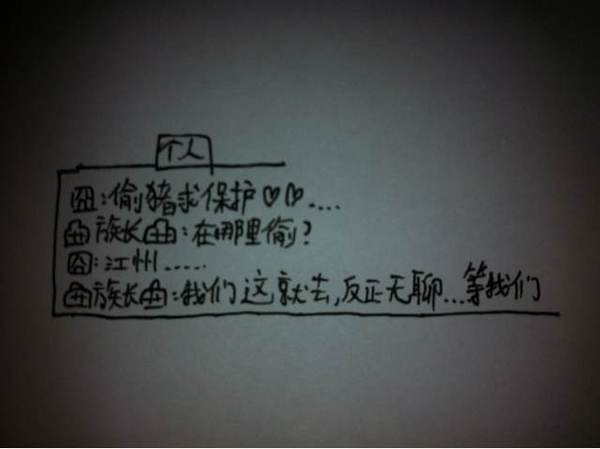 个人
囧:偷猪求保护♡♡....
曲族长曲:在哪里偷?
囧:江州.....
曲族长曲:我们这就去,反正无聊...等我们